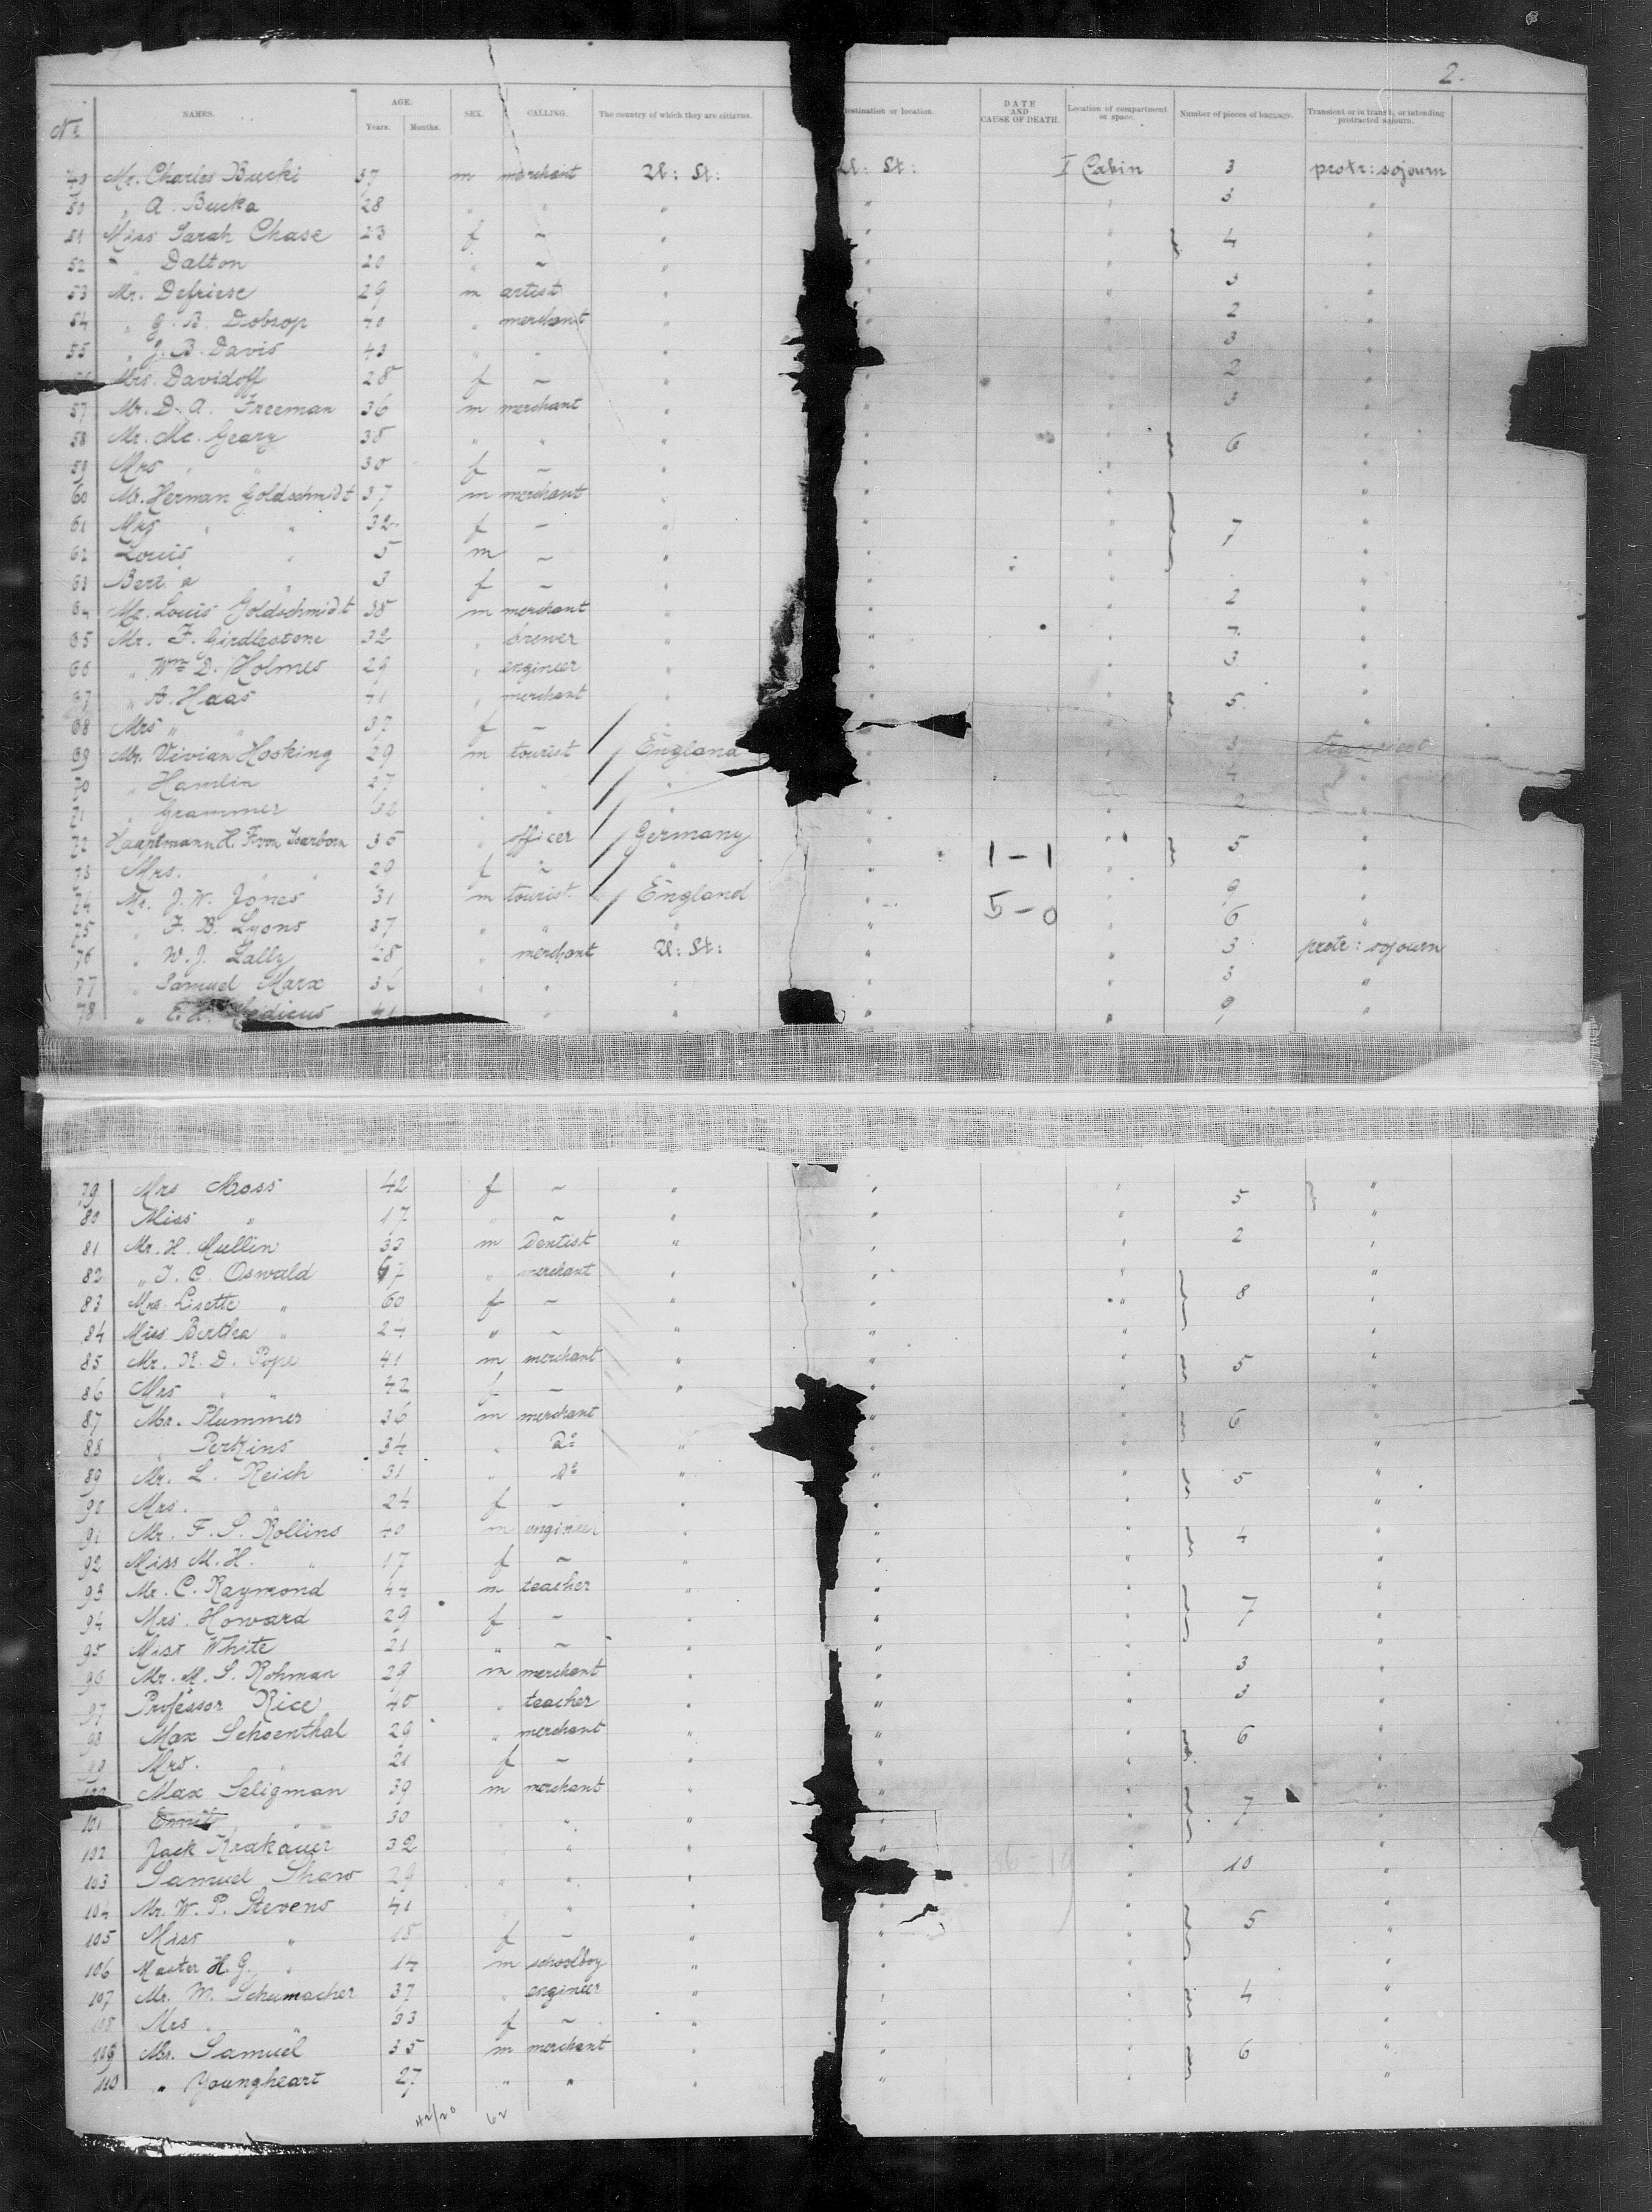 2.
No NAMES. AGE. Years. Months. SEX. CALLING. The country of which they are citizens. estination or location. DATE AND CAUSE OF DEATH. Location of compartment or space. Number of pieces of baggage. Transient or in transit, or intending protracted sojourn.
49 Mr. Charles Bucki 37 m merchant U: St: U: St: I Cabin 3 protr: sojourn
50 " A. Bucka 28 " " " " " 3 "
51 Miss Sarah Chase 23 f ~ " " " 4 "
52 " " Dalton 20 " ~ " " " "
53 Mr. Defriese 29 m artist " " " 3 "
54 " G. B. Dobson 40 " merchant " " " 2 "
55 " J. B. Davis 43 " " " " " 3 "
Mrs. Davidoff 28 f ~ " " " 2 "
57 Mr. D. A. Freeman 36 m merchant " " " 3 "
58 Mr. Mc. Geary 38 " " " " " 6 "
59 Mrs " " 30 f ~ " " " "
60 Mr. Herman Goldschmidt 37 m merchant " " " "
61 Mrs " " 32 f - " " " 7 "
62 Louis " 5 m ~ " " " "
63 Bert a " 3 f ~ " " " "
64 Mr. Louis Goldschmidt 38 m merchant " " " 2 "
65 Mr. F. Girdlestone 32 " brewer " " " 7 "
66 " Wm D. Holmes 29 " engineer " " " 3 "
67 " A. Haas 41 " merchant " " " 5 "
68 Mrs " " 37 f ~ " " " "
69 Mr. Vivian Hosking 29 m tourist England " " 3 transient
70 " Hamlin 27 " " " " " "
71 " Grammer 32 " " " " " 2 "
72 Hauptmann H. F. von 35 " officer Germany " " 5 "
73 Mrs. " " 29 f ~ " " 1-1 " "
74 Mr. J. W. Jones 31 m tourist England " " 9 "
75 " F. B. Lyons 37 " " " " 5-0 " 6 "
76 " W. J. Lally 28 " merchant U: St: " " 3 protr: sojourn
77 " Samuel Marx 36 " " " " " 3 "
78 " E. H. 41 " " " " 9 "
79 Mrs Moss 42 f ~ " " " 5 "
80 Miss " 17 " ~ " " " "
81 Mr. H. Mullin 33 m Dentist " " " 2 "
82 " J. C. Oswald 67 " merchant " " " "
83 Mrs. Lisette " 60 f ~ " " " 8 "
84 Miss Bertha " 24 " ~ " " " "
85 Mr. N. D. Pope 41 m merchant " " " 5 "
86 Mrs " " 42 f ~ " " " "
87 Mr. Plummer 36 m merchant " " 6 "
88 " Perkins 34 " Do " " " "
89 Mr. L. Reich 31 " Do " " " 5 "
90 Mrs. " 24 f ~ " " " "
91 Mr. F. S. Rollins 40 m engineer " " " 4 "
92 Miss M. H. " 17 f ~ " " " "
93 Mr. C. Raymond 44 m teacher " " " "
94 Mrs. Howard 29 f ~ " " " 7 "
95 Miss White 21 " ~ " " " "
96 Mr. M. S. Rohman 29 m merchant " " " 3 "
97 Professor Rice 40 " teacher " " " 3 "
98 Max Schoenthal 29 " merchant " " " 6 "
99 Mrs. " 21 f ~ " " " "
100 Max Seligman 39 m merchant " " " "
101 Emil " 30 " " " " " 7 "
102 Jack Krakauer 32 " " " " " "
103 Samuel Shaw 29 " " " " " 10 "
104 Mr. W. P. Stevens 41 " " " " " "
105 Miss " 18 f ~ " " " 5 "
106 Master H. G. " 14 m schoolboy " " " "
107 Mr. M. Schumacher 37 " engineer " " " 4 "
108 Mrs " " 33 f ~ " " " "
109 Mr. Samuel 35 m merchant " " " 6 "
110 " Youngheart 27 " " " " " "
42/20 62